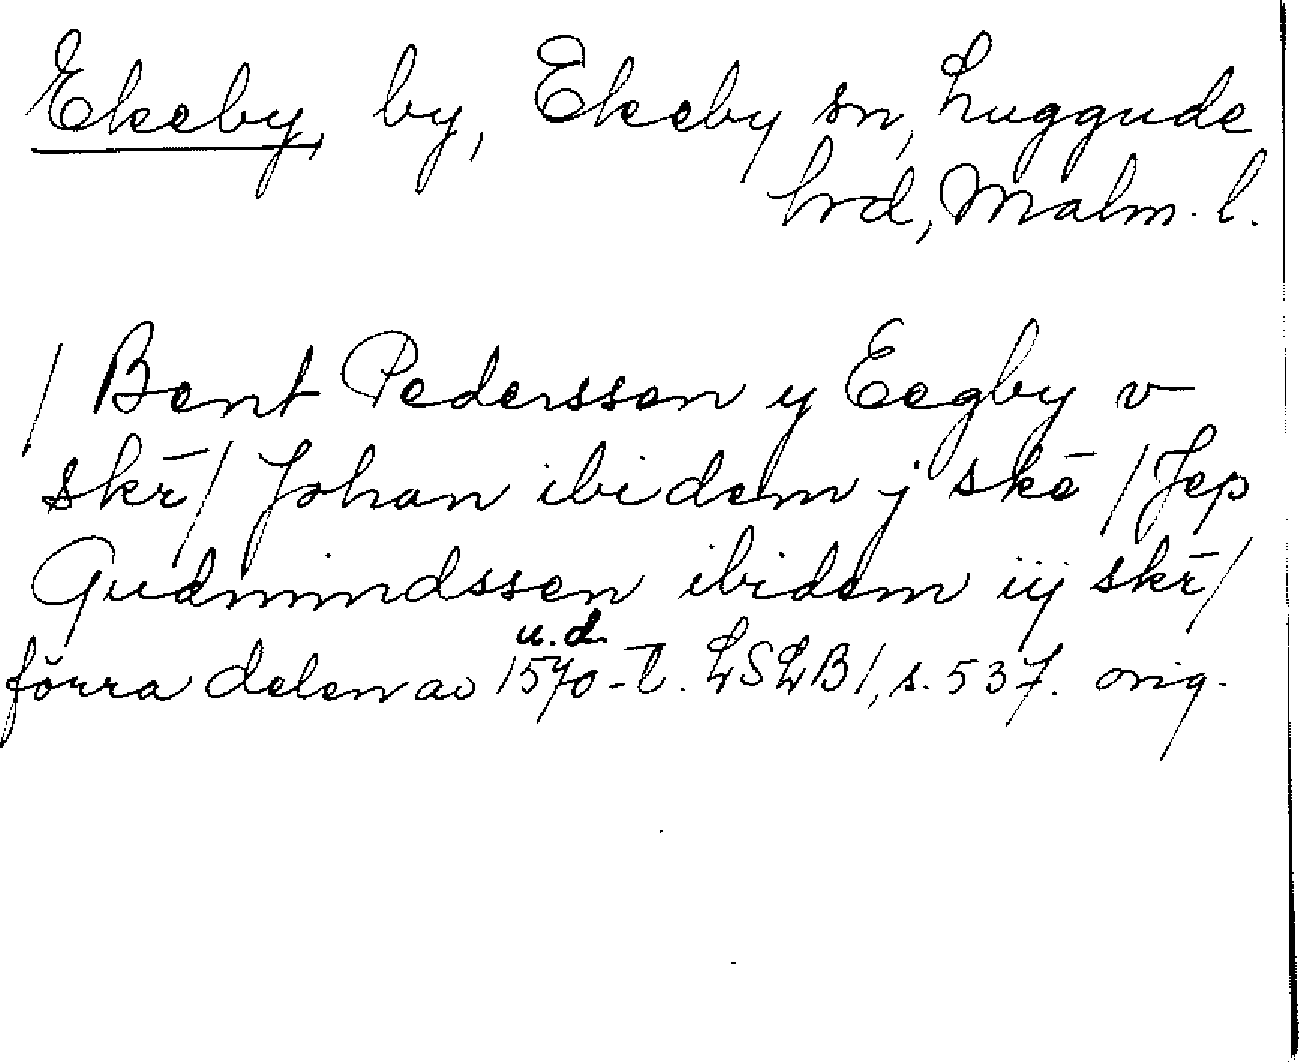 Ekeby, by, Ekeby sn, Luggude
hrd, Malm. l.
/ Bent Pederssen y Eegby v
skr̄ / Johan ibidem j skē / Jep
Gudmindssen ibidem iij skr̄ /
u.d.
förra delen av 1570-t. LSLB 1, s. 537. orig.